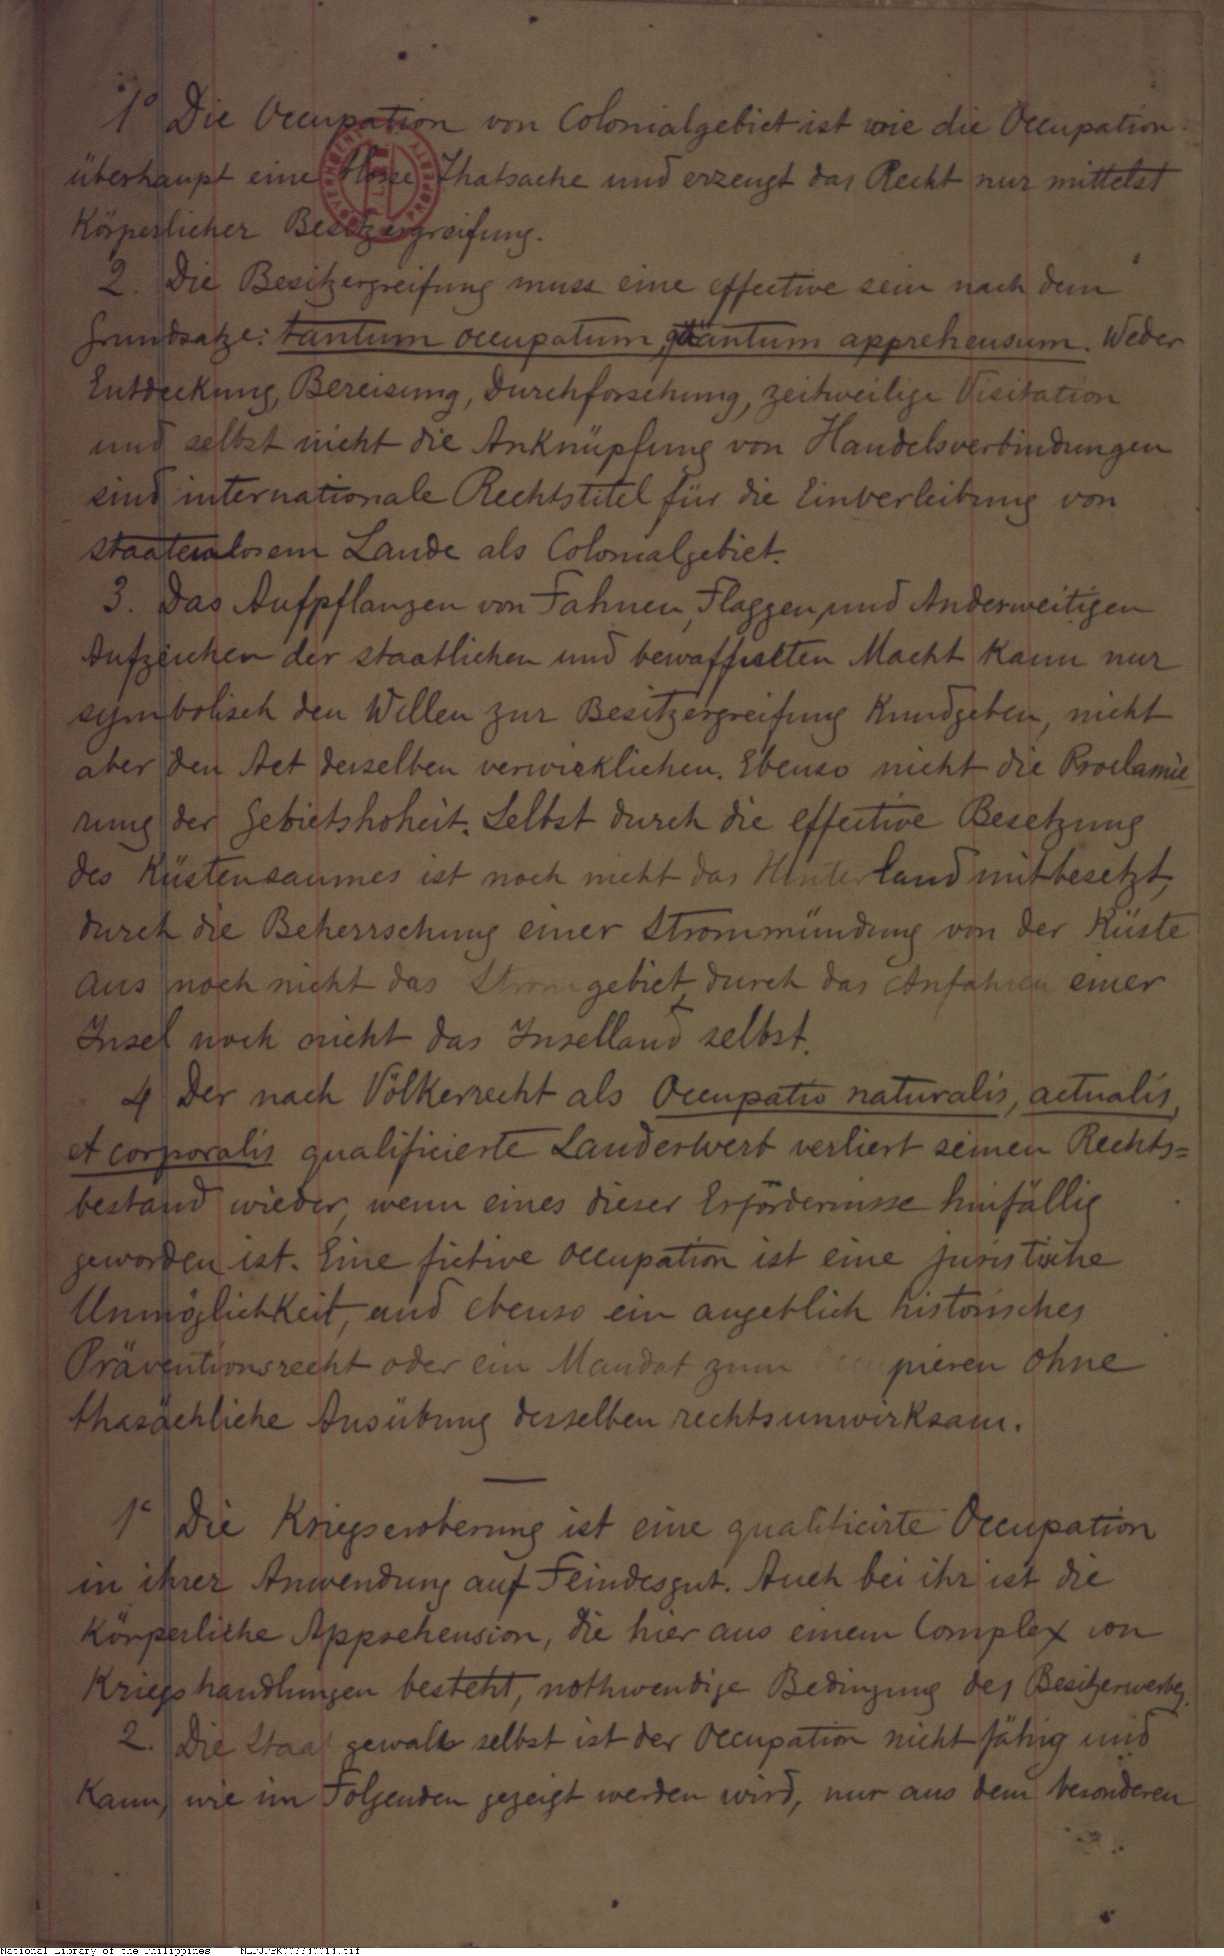 1° Die Occupation von Colonialgebiet ist wie die Occupation
überhaupt eine blosse Thatsache und erzeugt das Recht nur mittelst
Körperlicher Besitzergreifung.
2. Die Besitzergreifung muss eine effective sein nach dem
Grundsatze: tantum occupatum, quantum apprehensum. Weder
Entdeckung, Bereisung, Durchforschung, zeitweilige Visitation
und selbst nicht die Anknüpfung von Handelsverbindungen
sind internationale Rechtstitel für die Einverleibung von
staatenlosem Lande als Colonialgebiet.
3. Das Aufpflanzen von Fahnen, Flaggen, und Anderweitigen
Aufzeichen der staatlichen und bewaffneten Macht kann nur
symbolisch den Willen zur Besitzergreifung Kundgeben, nicht
aber den Act derselben verwirklichen. Ebenso nicht die Proclamie-
rung der Gebietshoheit. Selbst durch die effective Besetzung
des Küstensaumes ist noch nicht das Hinterland mitbesetzt,
durch die Beherrschung einer Strommündung von der Küste
aus noch nicht das Stromgebiet, durch das Anfahren einer
Insel noch nicht das Inselland selbst.
4 Der nach Völkerrecht als Occupatio naturalis, actualis,
et corporalis qualificierte Landerwerb verliert seinen Rechts=
bestand wieder, wenn eines dieser Erfördernisse hinfällig
geworden ist. Eine fictive Occupation ist eine juristiche
Unmöglichkeit, und ebenso ein angeblich historisches
Präventionsrecht oder ein Mandat zum pieren ohne
thasächliche Ausübung desselben rechtsunwirksam.
1° Die Kriegseroberung ist eine qualificirte Occupation
in ihrer Anwendung auf Feindesgut. Auch bei ihr ist die
Körperliche Apprehension, die hier aus einem Complex von
Kriegshandlungen besteht, nothwendige Bedingung des Besitzerwerbes.
2. Die Staat gewalt selbst ist der Occupation nicht fähig und
Kann, wie im Folgenden gezeigt werden wird, nur aus dem besonderen
National Library of the Philippines